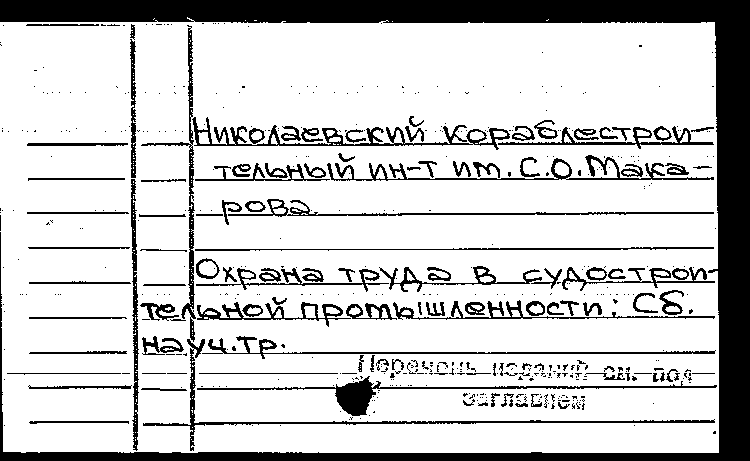 Николаевский кораблестрои-
тельный ин-т им. С.О. Мака-
рова.
Охрана труда в судострои-
тельной промышленности: Сб.
науч. тр.
Перечень изданий см. под
заглавием